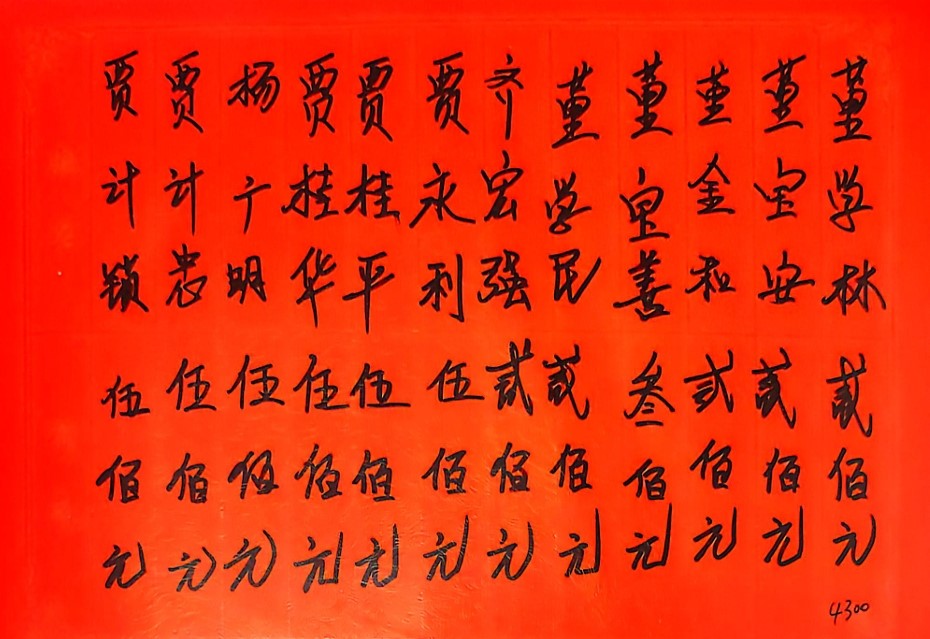 董学林贰佰元
董宝安贰佰元
董金和贰佰元
董宝善叁佰元
董学民贰佰元
齐宏强贰佰元
贾永利伍佰元
贾桂平伍佰元
贾桂华伍佰元
杨广明伍佰元
贾计忠伍佰元
贾计锁伍佰元
4300